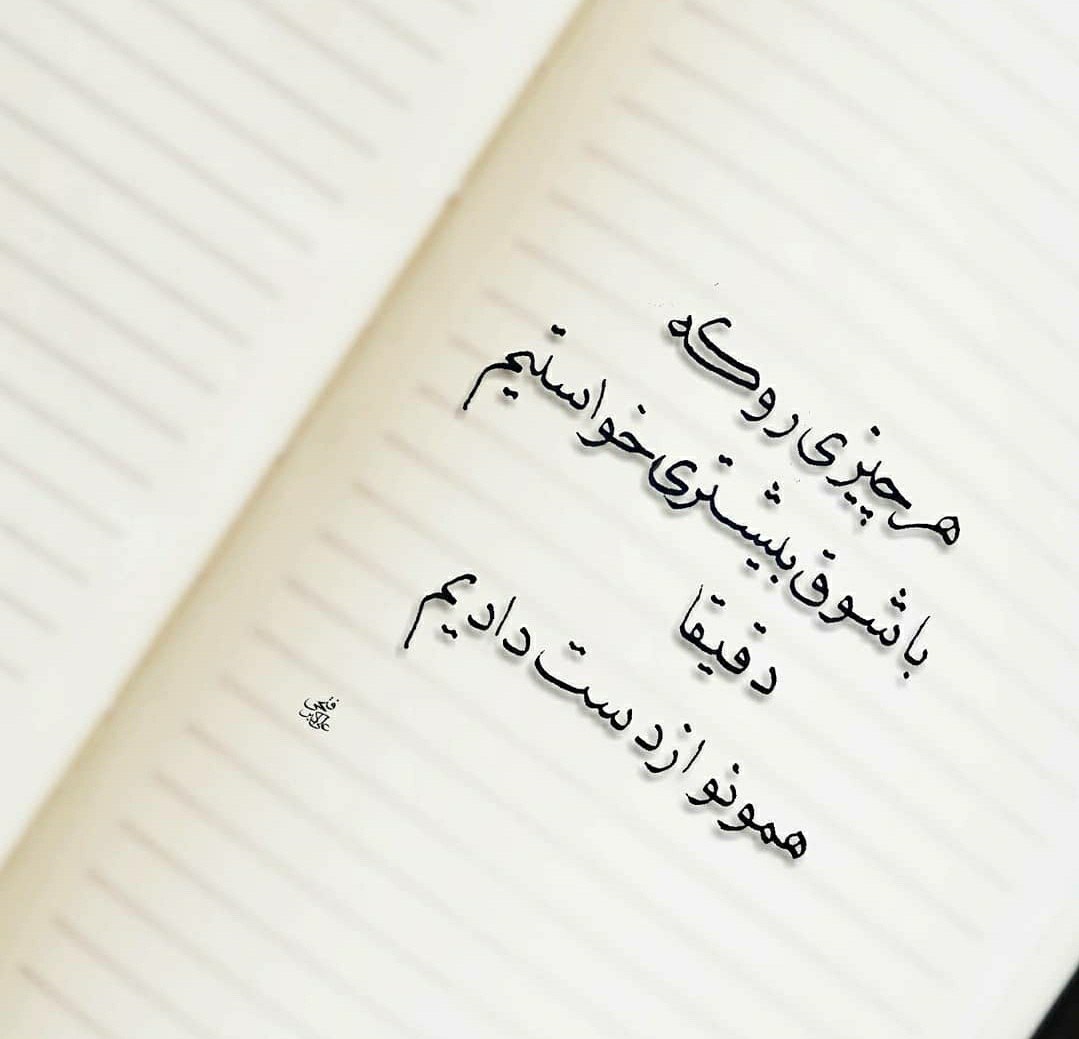 هر چیزی رو که
با شوق بیشتری خواستیم
دقیقا
همونو از دست دادیم